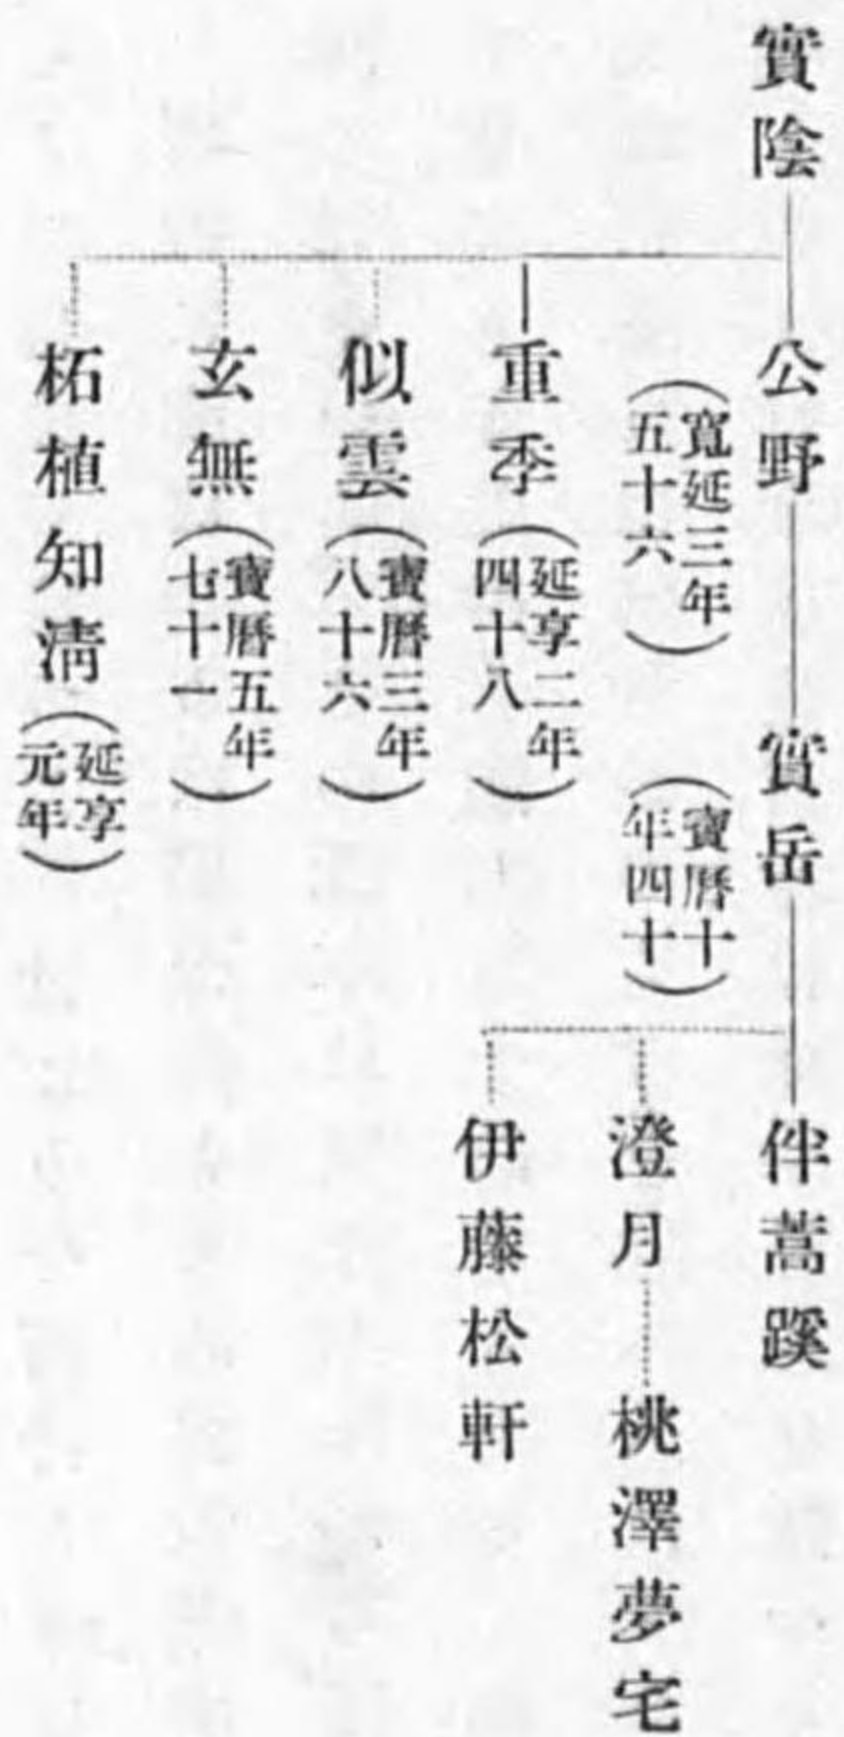 實陰
公野
（寬延三年
五十六）
實岳
（寶曆十
年四十）
伴蒿蹊
澄月
桃澤夢宅
伊藤松軒
重季
（延享二年
四十八）
似雲
（寶曆三年
八十六）
玄無
（寶曆五年
七十一）
柘植知淸
（延享
元年）